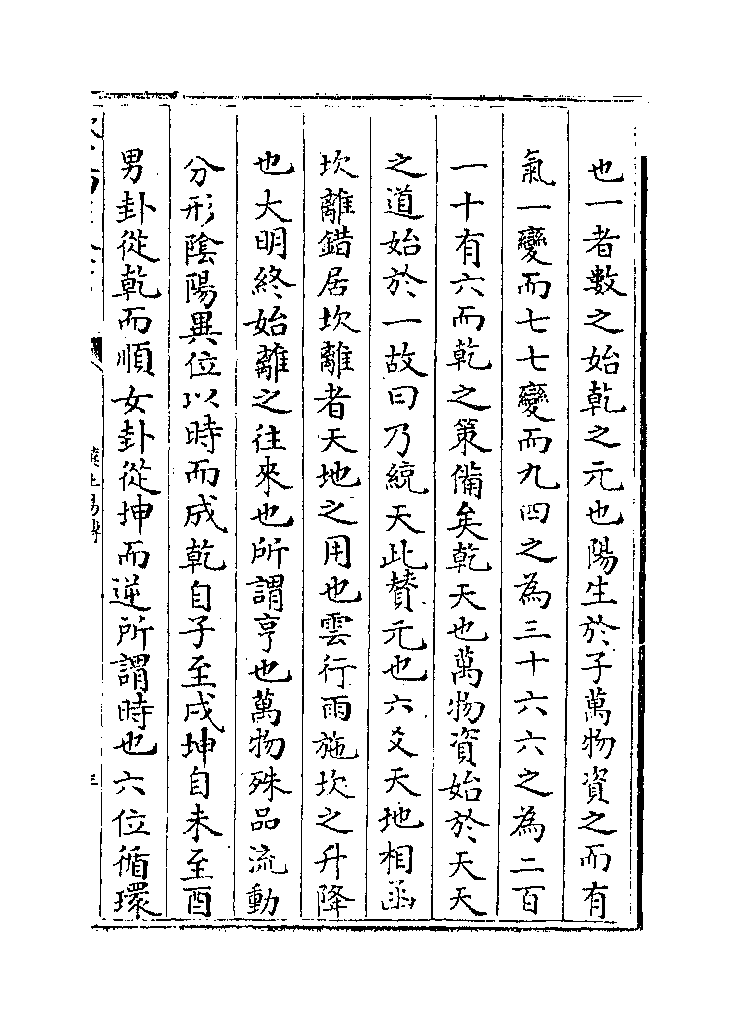 也一者數之始乾之元也陽生於子萬物資之而有
氣一變而七七變而九四之為三十六六之為二百
一十有六而乾之策備矣乾天也萬物資始於天天
之道始於一故曰乃統天此賛元也六爻天地相函
坎離錯居坎離者天地之用也雲行雨施坎之升降
也大明終始離之往來也所謂亨也萬物殊品流動
分形陰陽異位以時而成乾自子至戌坤自未至酉
男卦從乾而順女卦從坤而逆所謂時也六位循環
易傳